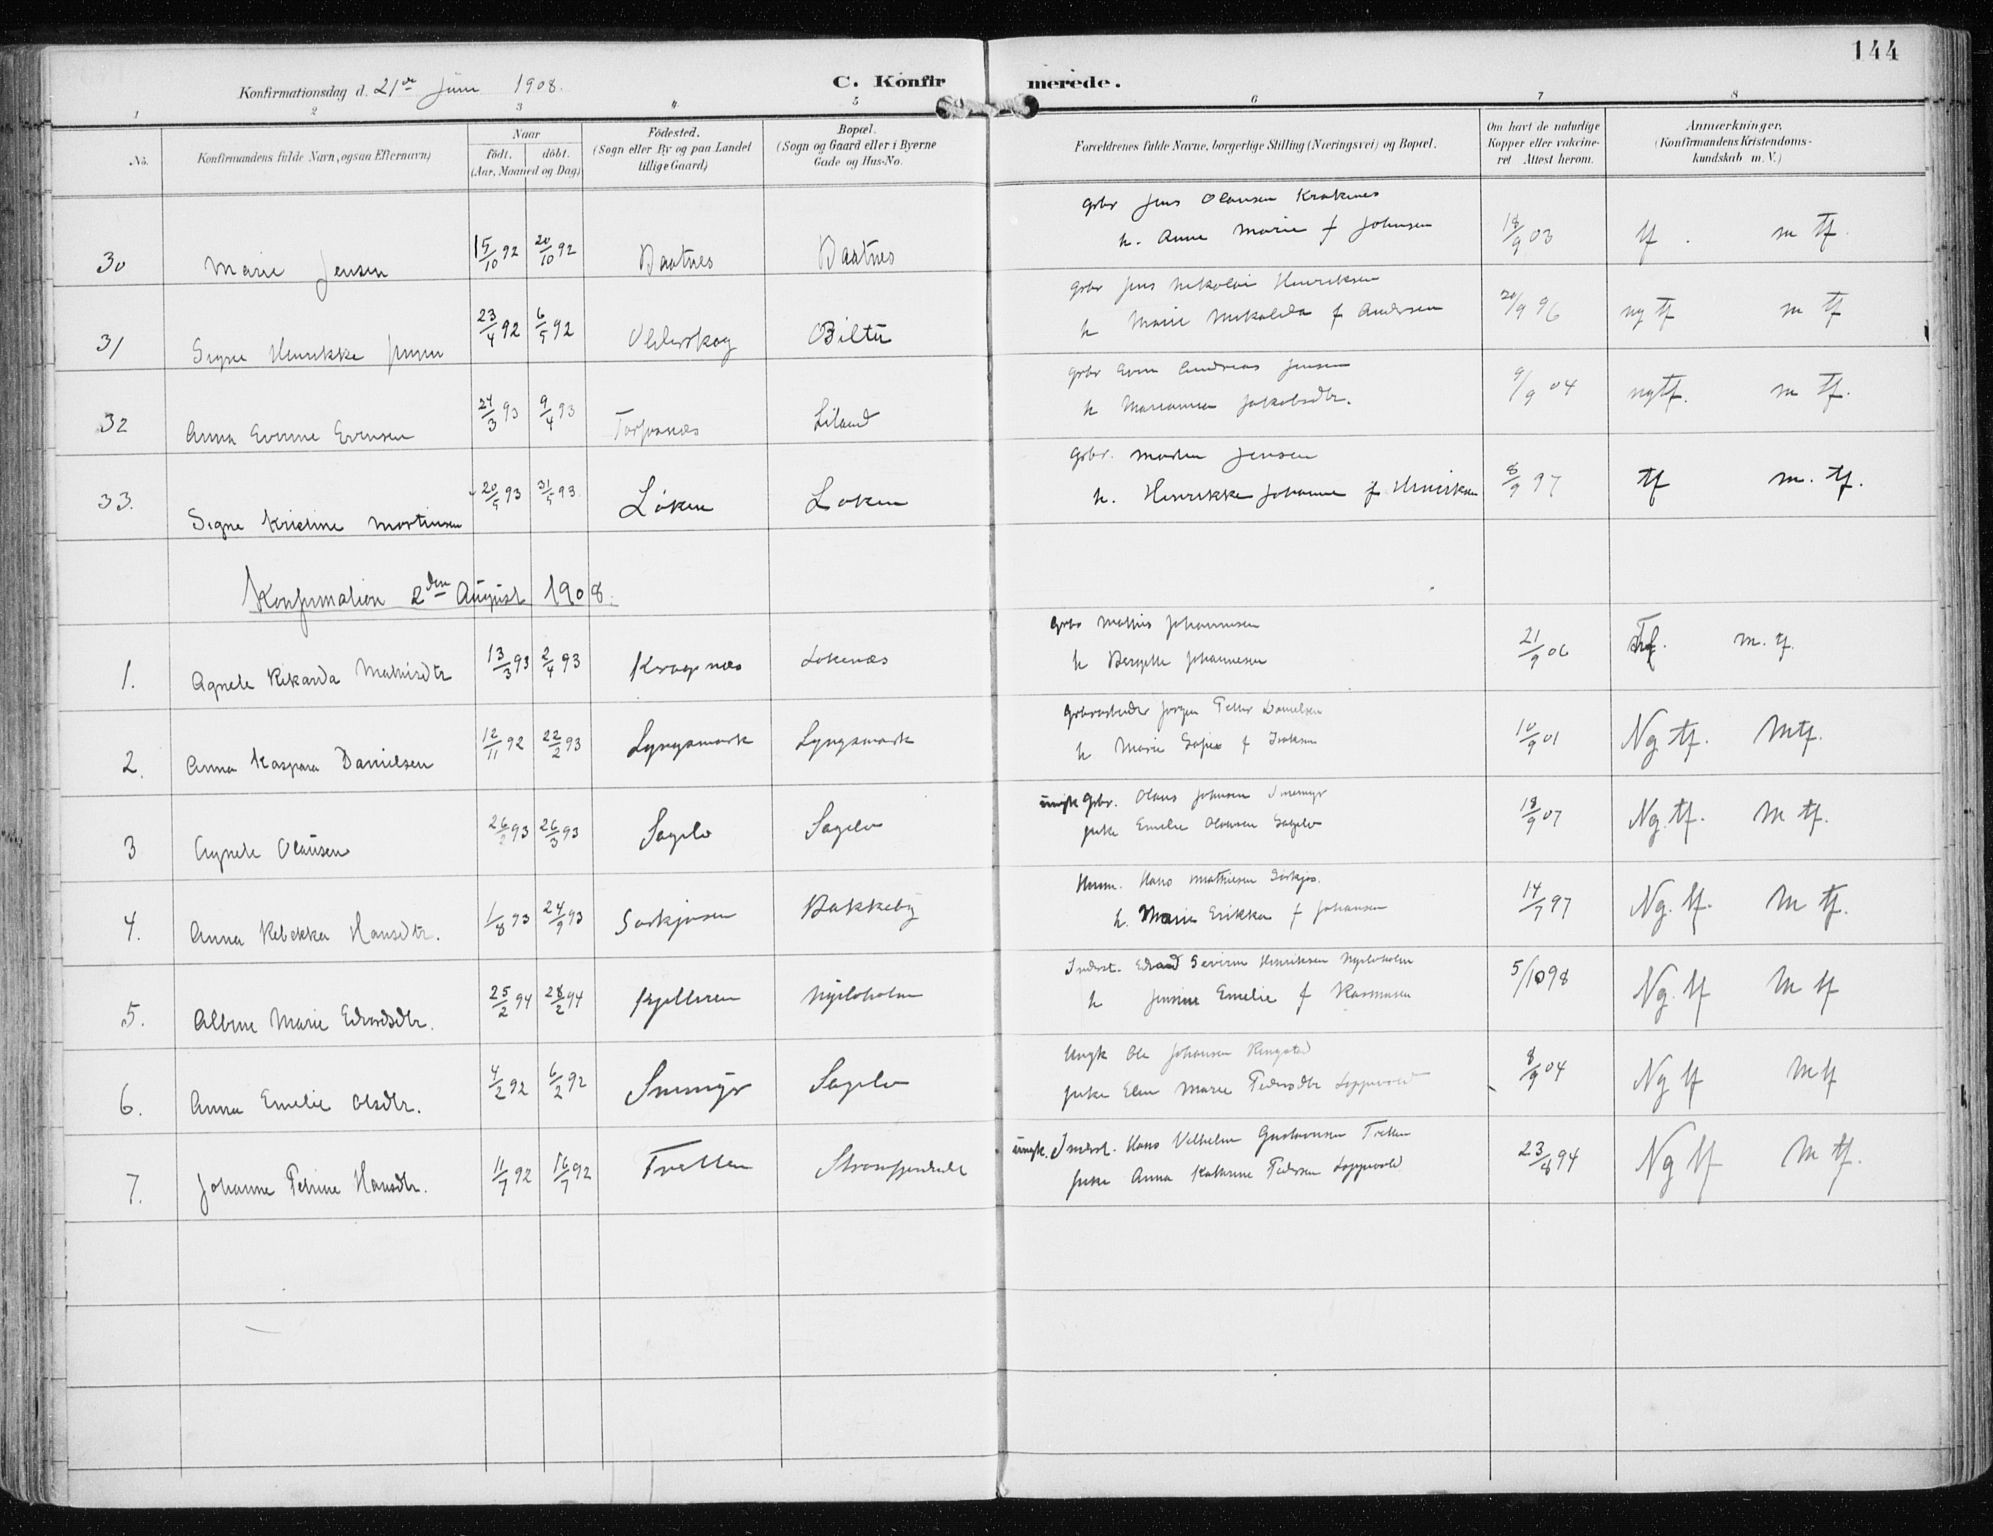 144
Konfirmationsdag d. 21de Juni 1908.
C. Konfirmerede.
1 2 3 4 5 6 7 8
No.
Konfirmandens fulde Navn, ogsaa Efternavn)
Naar
födt. döbt.
(Aar, Maaned og Dag)
Födested.
(Sogn eller By og paa Landet
tillige Gaard)
Bopæl.
(Sogn og Gaard eller i Byerne
Gade og Hus-No.
Forældrenes fulde Navne, borgerlige Stilling (Næringsvei) og Bopæl.
Om havt de naturlige
Kopper eller vakcine-
ret Attest herom.
Anmærkninger.
(Konfirmandens Kristendoms-
kundskab m. V.)
30 Marie Jensen 15/10 92 20/10 92 Baatnes Baatnes
Grbr Jens Olausen Kraknes
h. Anne Marie f Johnsen 18/9 03 tf. m tf.
31 Signe Henrikke Jensen 23/4 92 6/5 92 Olderskog Bilto
Grbr Jens Nikolai Henriksen
h Marie Nikolida f Andersen 20/9 96 ng tf m tf
32 Anna Evenne Evensen 24/3 93 9/4 93 Torfosnæs Liland
Grbr Even Andreas Jensen
h Marianna Jakobsdtr. 9/9 04 ng tf. m tf.
33. Signe Kristine Mortinsen 20/5 93 31/5 93. Løken Løken
Grbr. Morten Jensen
h. Henrikke Johanna f Henriksen 8/9 97 tf m. tf.
Konfirmation 2den August 1908.
1. Agnete Rikarda Mathisdtr 13/3 93 2/4 93 Kragenæs Lokenæs
Grbr Mathis Johannesen
h Bergitte Johannesen 21/9 06 Tf. m. tf.
2. Anna Kaspara Danielsen 12/11 92 22/2 93 Lyngsmark Lyngsmark
Grbrarbeider Jørgen Petter Danielsen
h Marie Sofie f Isaksen 10/9 01 Ng tf. Mtf.
3 Agnete Olausen 26/2 93 26/3 93 Sagelv Sagelv
ungk Grbr. Olaus Johnsen Snemyr
pike Emelie Olausen Sagelv 18/9 07 Ng. tf. M tf.
4. Anna Rebekka Hansdtr. 1/8 93 24/9 93 Sørkjosen Bakkeby
Husm. Hans Mathiesen Sørkjos.
h. Marie Erikka f Johansen 14/7 97 Ng. tf. M tf.
5. Albine Marie Edvardsdtr. 25/2 94 28/2 94 Kjelleren Nyeloholm
Inderst. Edvard Severin Henriksen Nyeloholm
h Jensine Emelie f Rasmusen 5/10 98 Ng. tf M tf
6. Anna Emelie Olsdtr. 4/2 92 6/2 92 Snemyr Sagelv
Ungk Ole Johansen Ringstad
pike Elen Marie Pedersdtr Loppevold 8/9 04 Ng tf M tf
7. Johanne Petrine Hansdtr. 11/7 92 16/7 92 Tretten Storfjordeidet
ungk. Inderst. Hans Vilhelm Gustavsen Tretten
pike Anna Katrine Pedersen Loppevold 23/8 94 Ng tf M tf.